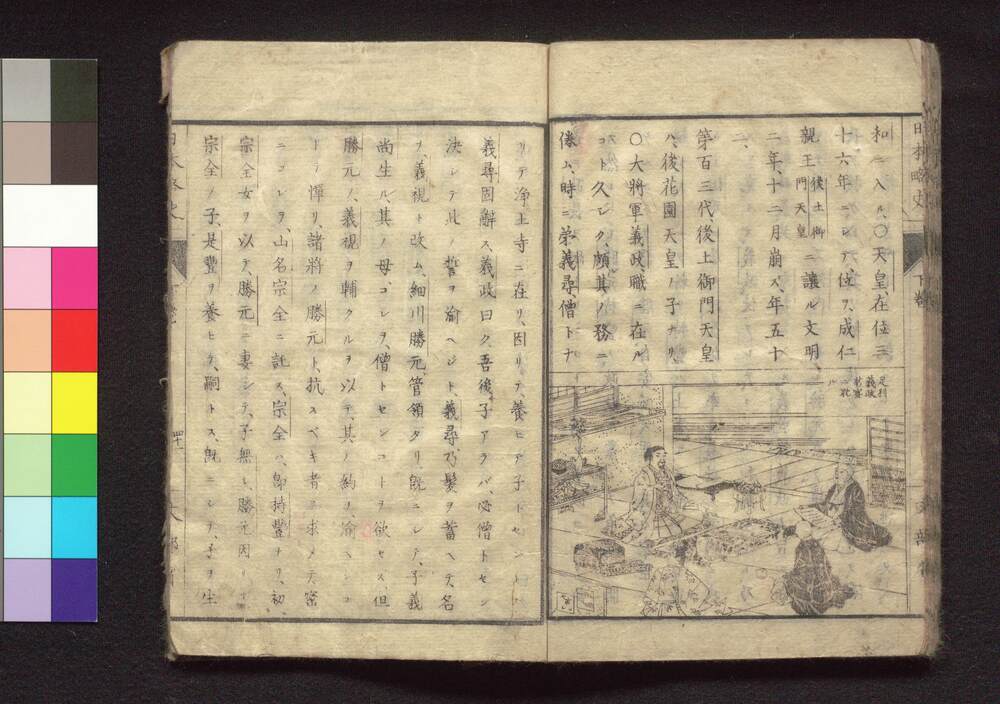 和ニ入ル、〇天皇、在位三
十六年ニシテ、位ヲ、成仁
親王後土御門天皇ニ讓ル文明、
二年、十二月崩ズ、年五十
二、
第百三代、後土御門天皇
ハ、後花園天皇ノ子ナリ、
〇大將軍義政、職ニ在ル
コト久シク、頗其ノ務ニ
倦ム、時ニ弟義尋僧トナ
足利
義政
ル
リテ淨土寺ニ在リ、因リテ、養ヒテ子トセン
義尋固辭ス、義政曰ク、吾後子アラバ、必僧トセン
決シテ此ノ誓ヲ渝ヘジト、義尋乃髮ヲ蓄ヘテ名
ヲ、義視ト改ム、細川勝元、管領タリ、既ニシテ、子義
尚生ル、其ノ母、コレヲ、僧トセンコトヲ欲セズ、但
勝元ノ、義視ヲ輔クルヲ以テ、其ノ約ヲ、渝ヘンコ
トヲ憚リ、諸將ノ勝元ト、抗スベキ者ヲ求メテ、密
ニコレヲ、山名宗全ニ託ス、宗全ハ、即持豐ナリ、初、
宗全女ヲ以テ、勝元ニ妻シテ、子無シ、勝元因リテ
宗全ノ子、是豐ヲ養ヒテ、嗣トス、既ニシテ、子ヲ生
日本略史
下卷
四十一